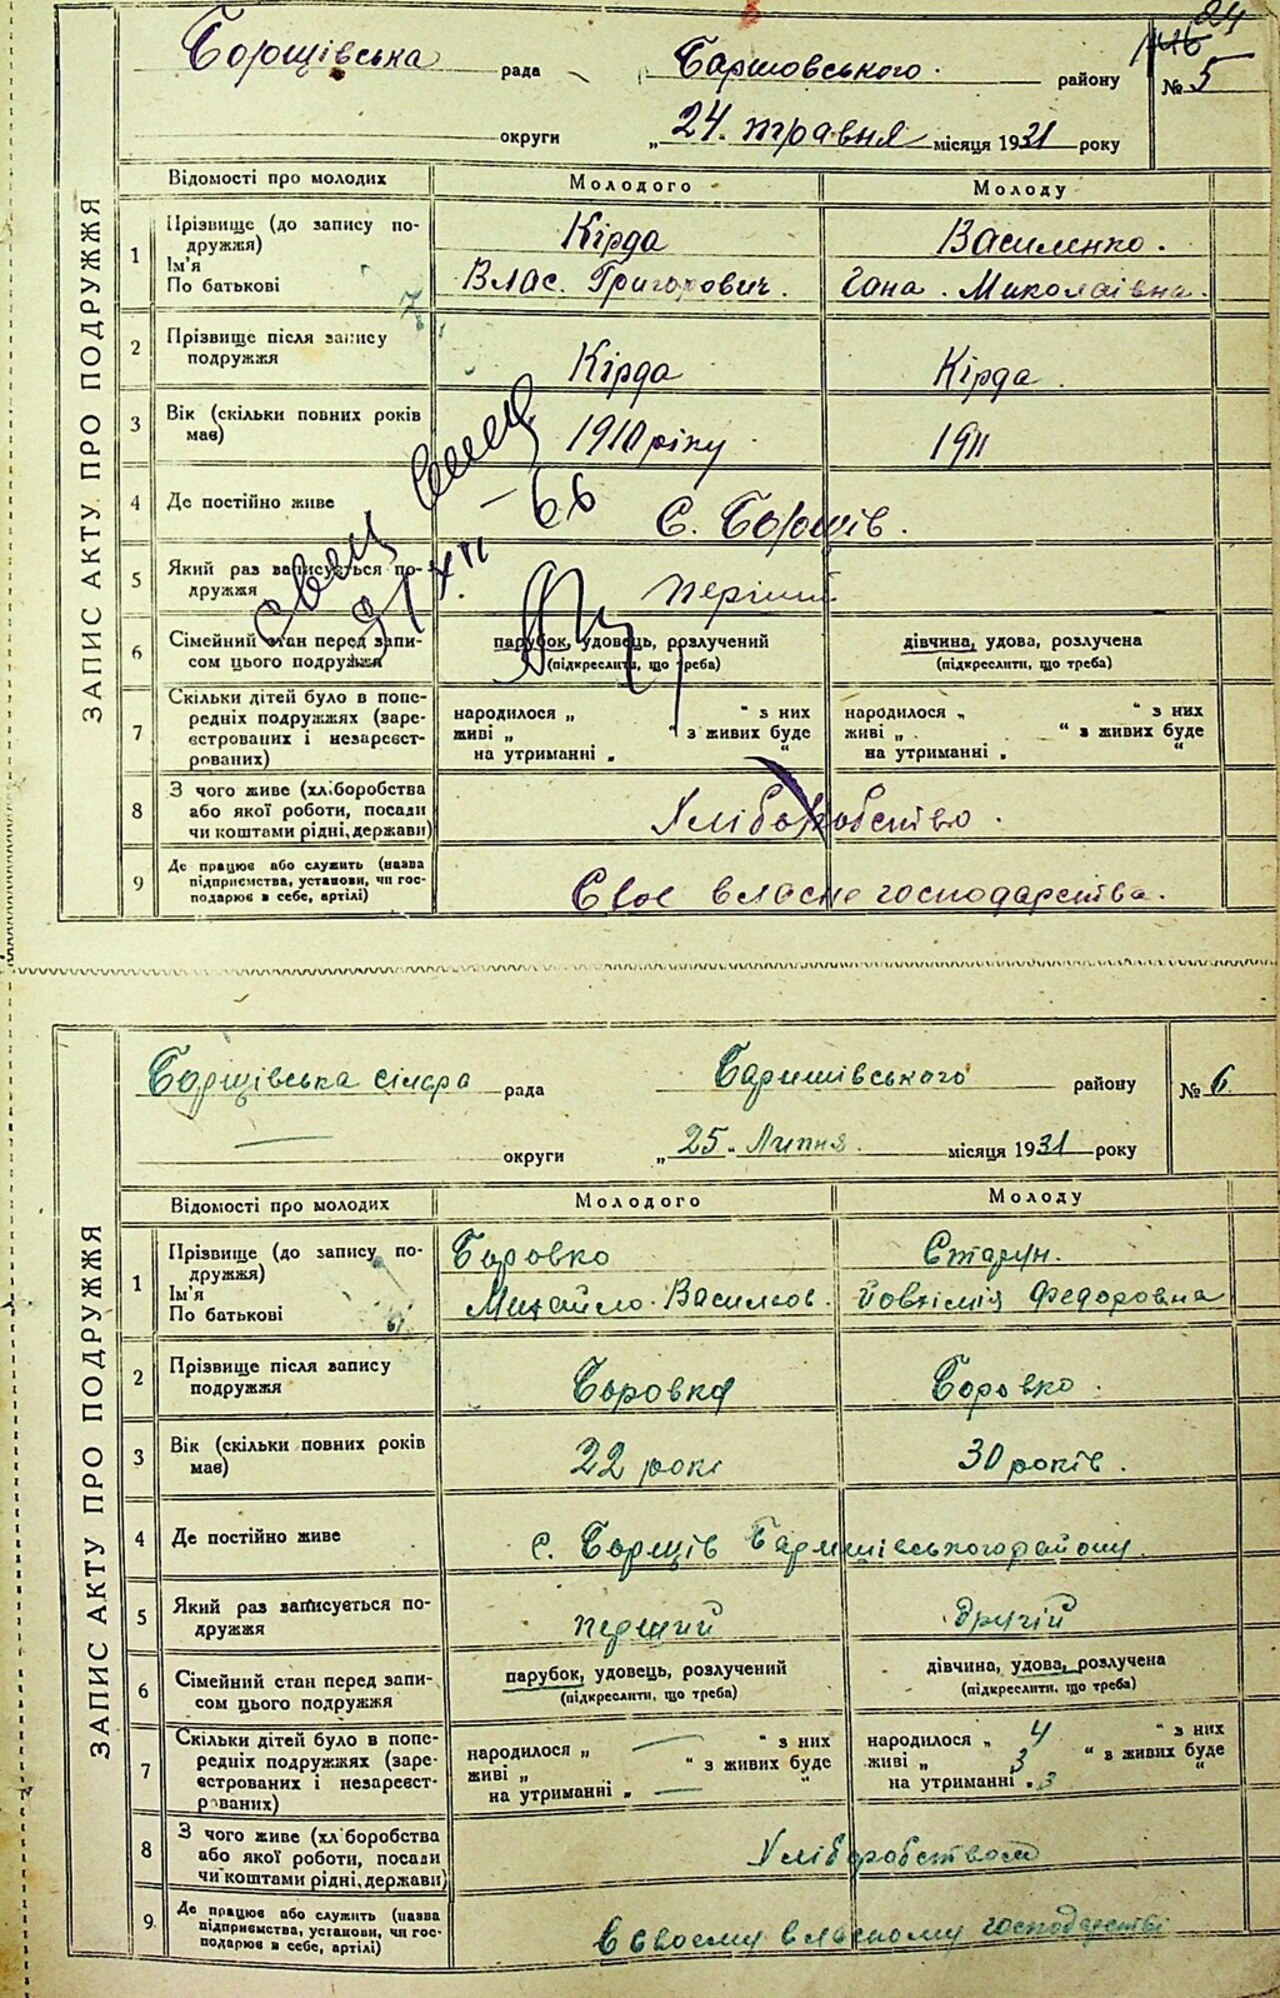 24
Борщівська рада Баршовського району № 5
округи „ 24. травня місяця 1931 року
ЗАПИС АКТУ ПРО ПОДРУЖЖЯ
Відомості про молодих Молодого Молоду
1 Прізвище (до запису по-
дружжя) Кірда Василенко.
Ім'я
По батькові Влас. Григорович. Гана. Миколаівна.
2 Прізвище після запису
подружжя Кірда Кірда.
3 Вік (скільки повних років
має) 1910 ріку 1911
4 Де постійно живе С. Борщів.
5 Який раз записується по-
дружжя перший
6 Сімейний стан перед запи- парубок, удовець, розлучений дівчина, удова, розлучена
сом цього подружжя (підкреслити, що треба) (підкреслити, що треба)
7 Скільки дітей було в попе-
редніх подружжях (заре- народилося „ “ з них народилося „ “ з них
єстрованих і незареєст- живі „ “ з живих буде живі „ “ з живих буде
рованих) на утриманні „ “ на утриманні „ “
8 З чого живе (хліборобства
або якої роботи, посади
чи коштами рідні, держави) Хліборобство.
9 Де працює або служить (назва
підприємства, установи, чи гос-
подарює в себе, артілі) Своє власне господарства.
Свец
9/XII - 66
Борщівська сілєра рада Баришівського району № 6.
округи „ 25. Липня. місяця 1931 року
ЗАПИС АКТУ ПРО ПОДРУЖЖЯ
Відомості про молодих Молодого Молоду
1 Прізвище (до запису по-
дружжя) Боровко Старун.
Ім'я
По батькові Михайло. Васильов. Йовхімія Федоровна
2 Прізвище після запису
подружжя Боровко Боровко.
3 Вік (скільки повних років
має) 22 рокі 30 років.
4 Де постійно живе с. Борщів Баришівського району
5 Який раз записується по-
дружжя перший другій
6 Сімейний стан перед запи- парубок, удовець, розлучений дівчина, удова, розлучена
сом цього подружжя (підкреслити, що треба) (підкреслити, що треба)
7 Скільки дітей було в попе-
редніх подружжях (заре- народилося „ — “ з них народилося „ 4 “ з них
єстрованих і незареєст- живі „ “ з живих буде живі „ 3 “ з живих буде
рованих) на утриманні „ — “ на утриманні „ 3 “
8 З чого живе (хліборобства
або якої роботи, посади
чи коштами рідні, держави) Хліборобством
9. Де працює або служить (назва
підприємства, установи, чи гос-
подарює в себе, артілі) в своєму власному господарстві